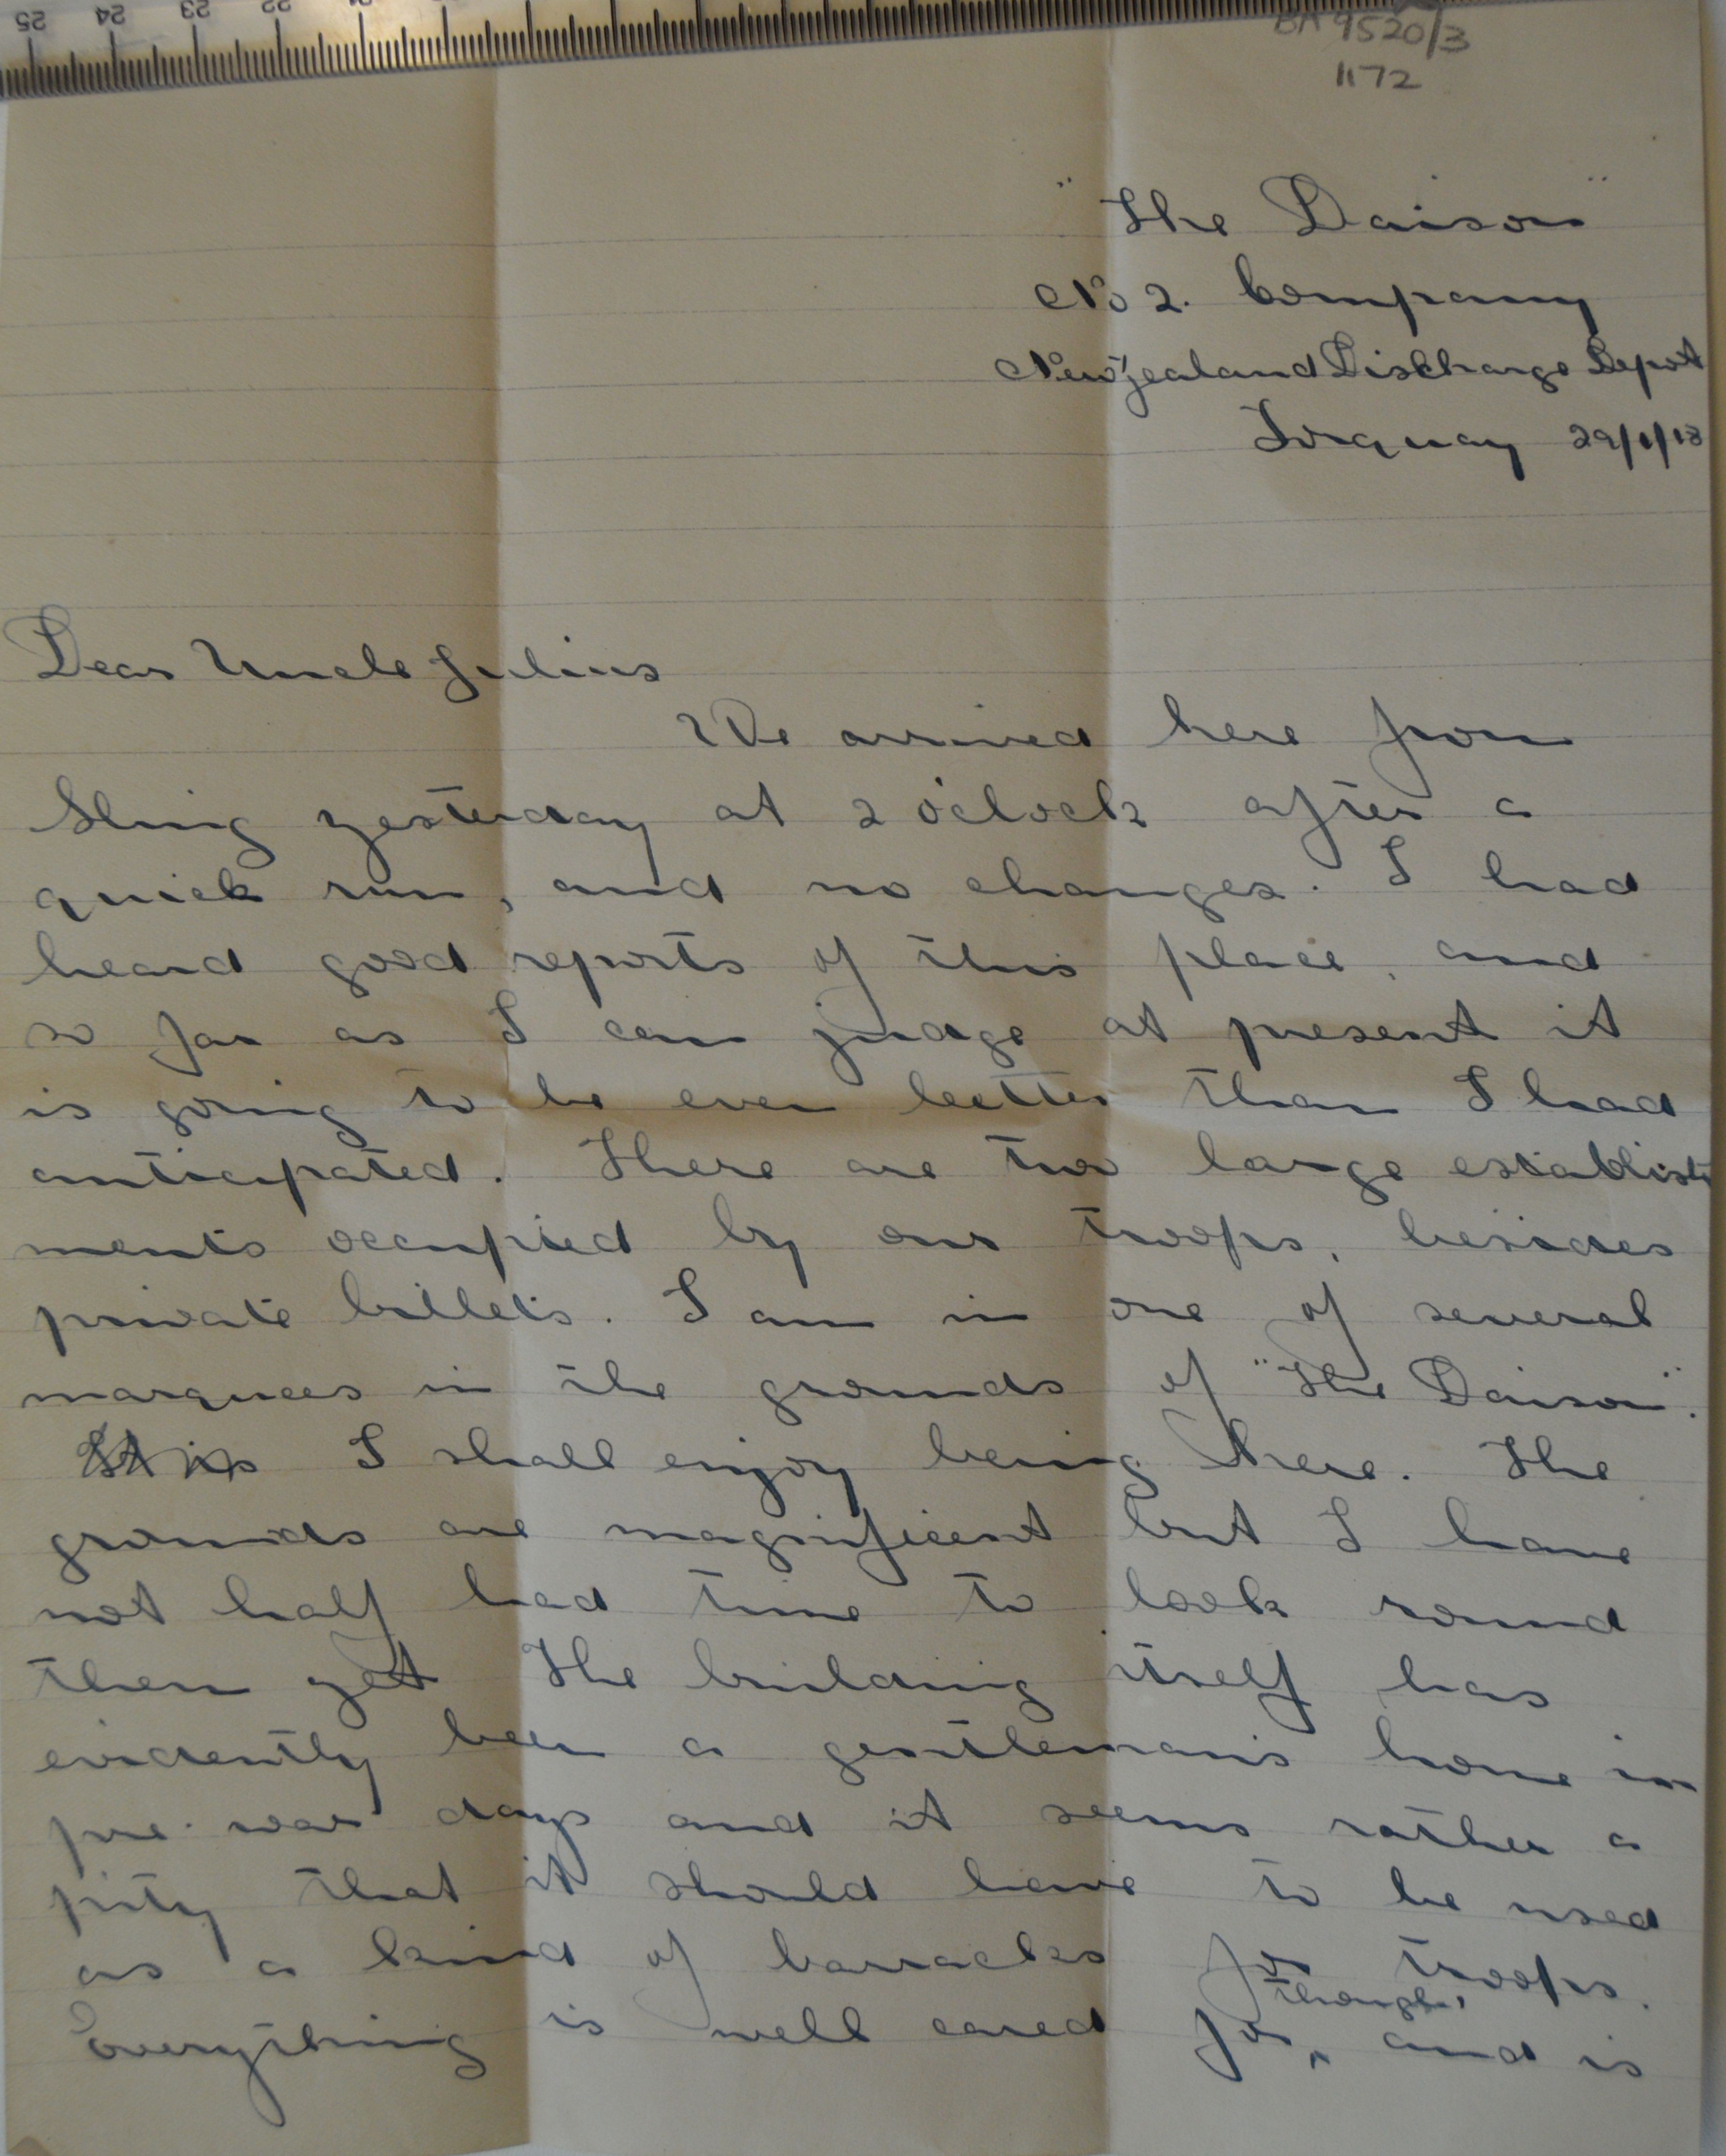 25 24 23 22 21
BA 9520/3
1172
"The Daison"
No 2. Company
New Zealand Discharge Depot
Torquay 29/1/18
Dear Uncle Julius
We arrived here from
Sling yesterday at 2 o'clock after a
quick run, and no changes. I had
heard good reports of this place, and
so far as I can judge at present it
is going to be even better than I had
anticipated. There are two large establish
ments occupied by our troops, besides
private billets. I am in one of several
marquees in the grounds of "The Daison".
It is I shall enjoy being here. The
grounds are magnificent but I have
not half had time to look round
them yet The building itself has
evidently been a gentleman's home in
pre-war days and it seems rather a
pity that it should have to be used
as a kind of barracks for troops.
Everything is well cared for though, and is